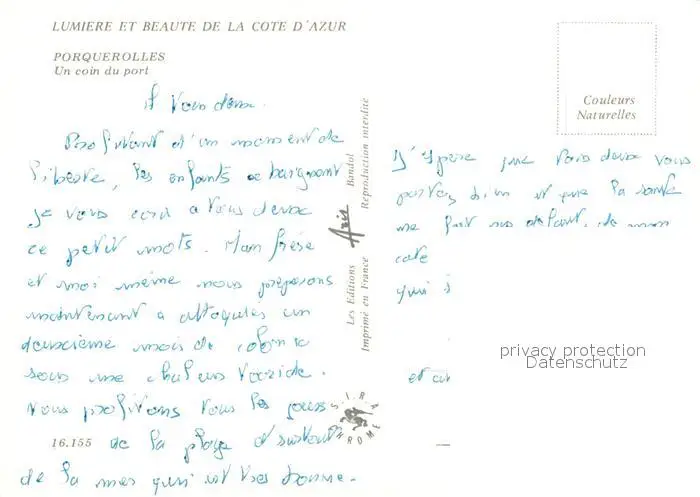 LUMIERE ET BEAUTE DE LA COTE D'AZUR
PORQUEROLLES
Un coin du port
Couleurs
Naturelles
A vous deux.
Profitant d'un moment de
liberté, les enfants se baignant
je vous écris a vous deux
ce petit mots. Mon frère
et moi même nous préparons
maintenant a attaquer un
deuxième mois de colonie
sous une chaleur torride.
Nous profitons tous les jours
de la plage et surtout
de la mer qui est très bonne.
J'espère que vous deux vous
portez bien et que la santé
ne fait pas défaut. de mon
coté
qui
et
Les Editions Aris Bandol
Imprimé en France Reproduction interdite
SIRA
CHROME
16.155
privacy protection
Datenschutz